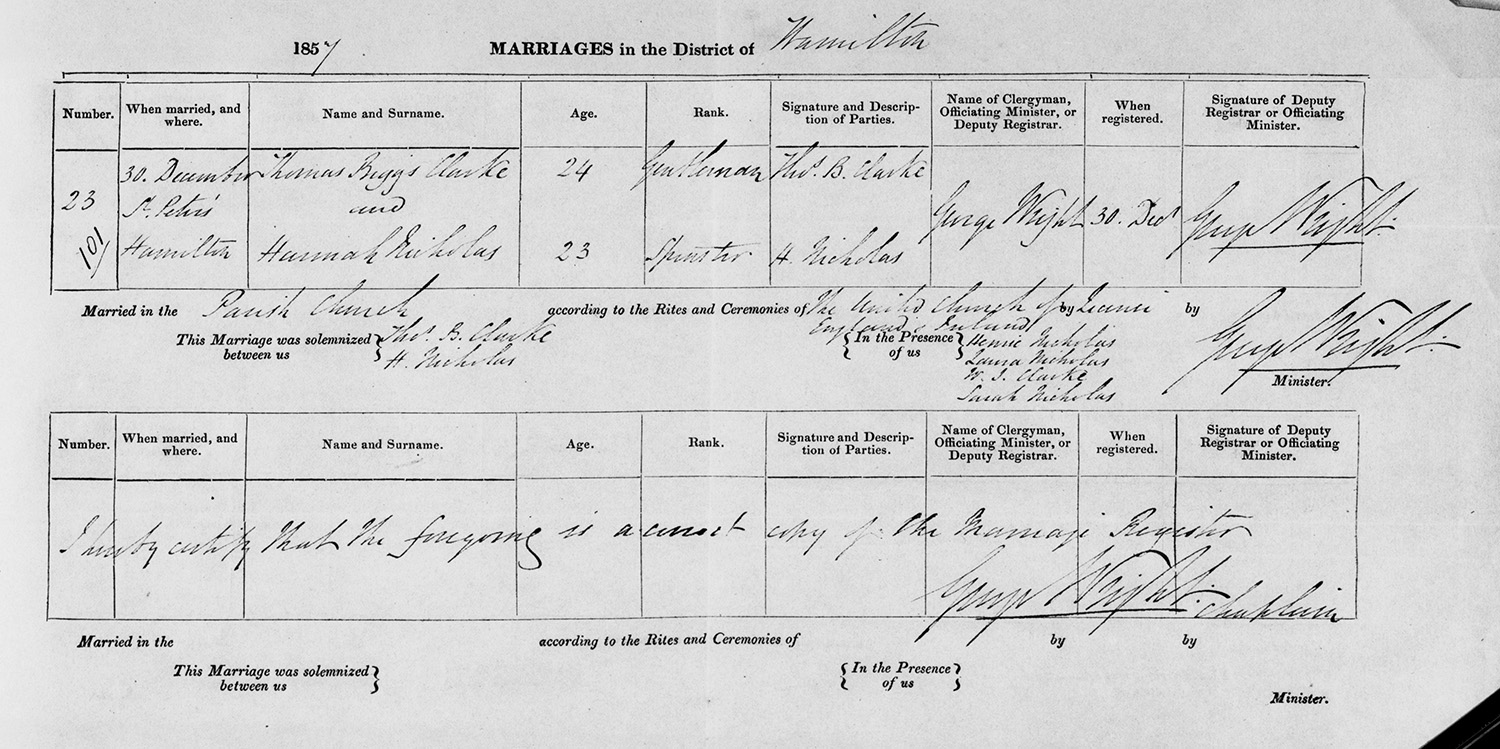 1857 MARRIAGES in the District of Hamilton
Number. When married, and where. Name and Surname. Age. Rank. Signature and Description of Parties. Name of Clergyman, Officiating Minister, or Deputy Registrar. When registered. Signature of Deputy Registrar or Officiating Minister.
30. December Thomas Biggs Clarke 24 Gentleman Thos. B. Clarke
23 St. Peters and George Wright 30. Decr George Wright
101 Hamilton Hannah Nicholas 23 Spinster H. Nicholas
Married in the Parish Church according to the Rites and Ceremonies of The United Church of England & Ireland by Licence by George Wright
This Marriage was solemnized between us { Thos. B. Clarke
H. Nicholas
In the Presence of us { Henrie Nicholas
Laura Nicholas
W. J. Clarke
Sarah Nicholas
Minister.
Number. When married, and where. Name and Surname. Age. Rank. Signature and Description of Parties. Name of Clergyman, Officiating Minister, or Deputy Registrar. When registered. Signature of Deputy Registrar or Officiating Minister.
I hereby certify that the foregoing is a correct copy of the Marriage Register
George Wright. Chaplain
Married in the according to the Rites and Ceremonies of by by
This Marriage was solemnized between us } { In the Presence of us }
Minister.